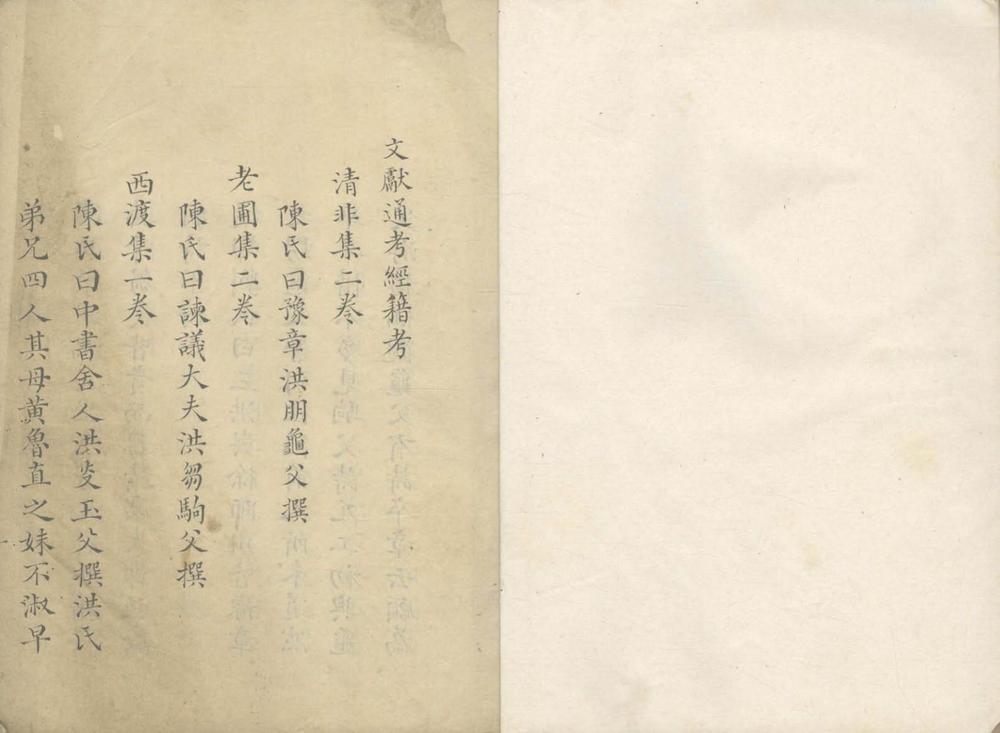 文獻通考經籍考
清非集二卷
陳氏曰豫章洪朋龜父撰
老圃集二卷
陳氏曰諫議大夫洪芻駒父撰
西渡集一卷
陳氏曰中書舍人洪炎玉父撰洪氏
弟兄四人其母黃魯直之妹不淑早